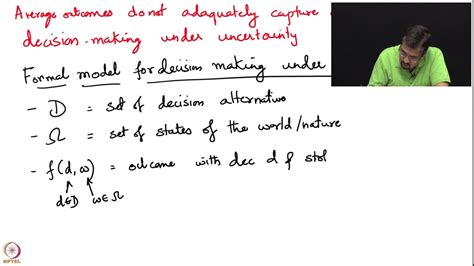 Average outcomes do not adequately capture
decision-making under uncertainty
Formal model for decision making under
- D = set of decision alternatives
- Ω = set of states of the world/nature
- f(d, ω) = outcome with dec d &
d∈D ω∈Ω
NPTEL